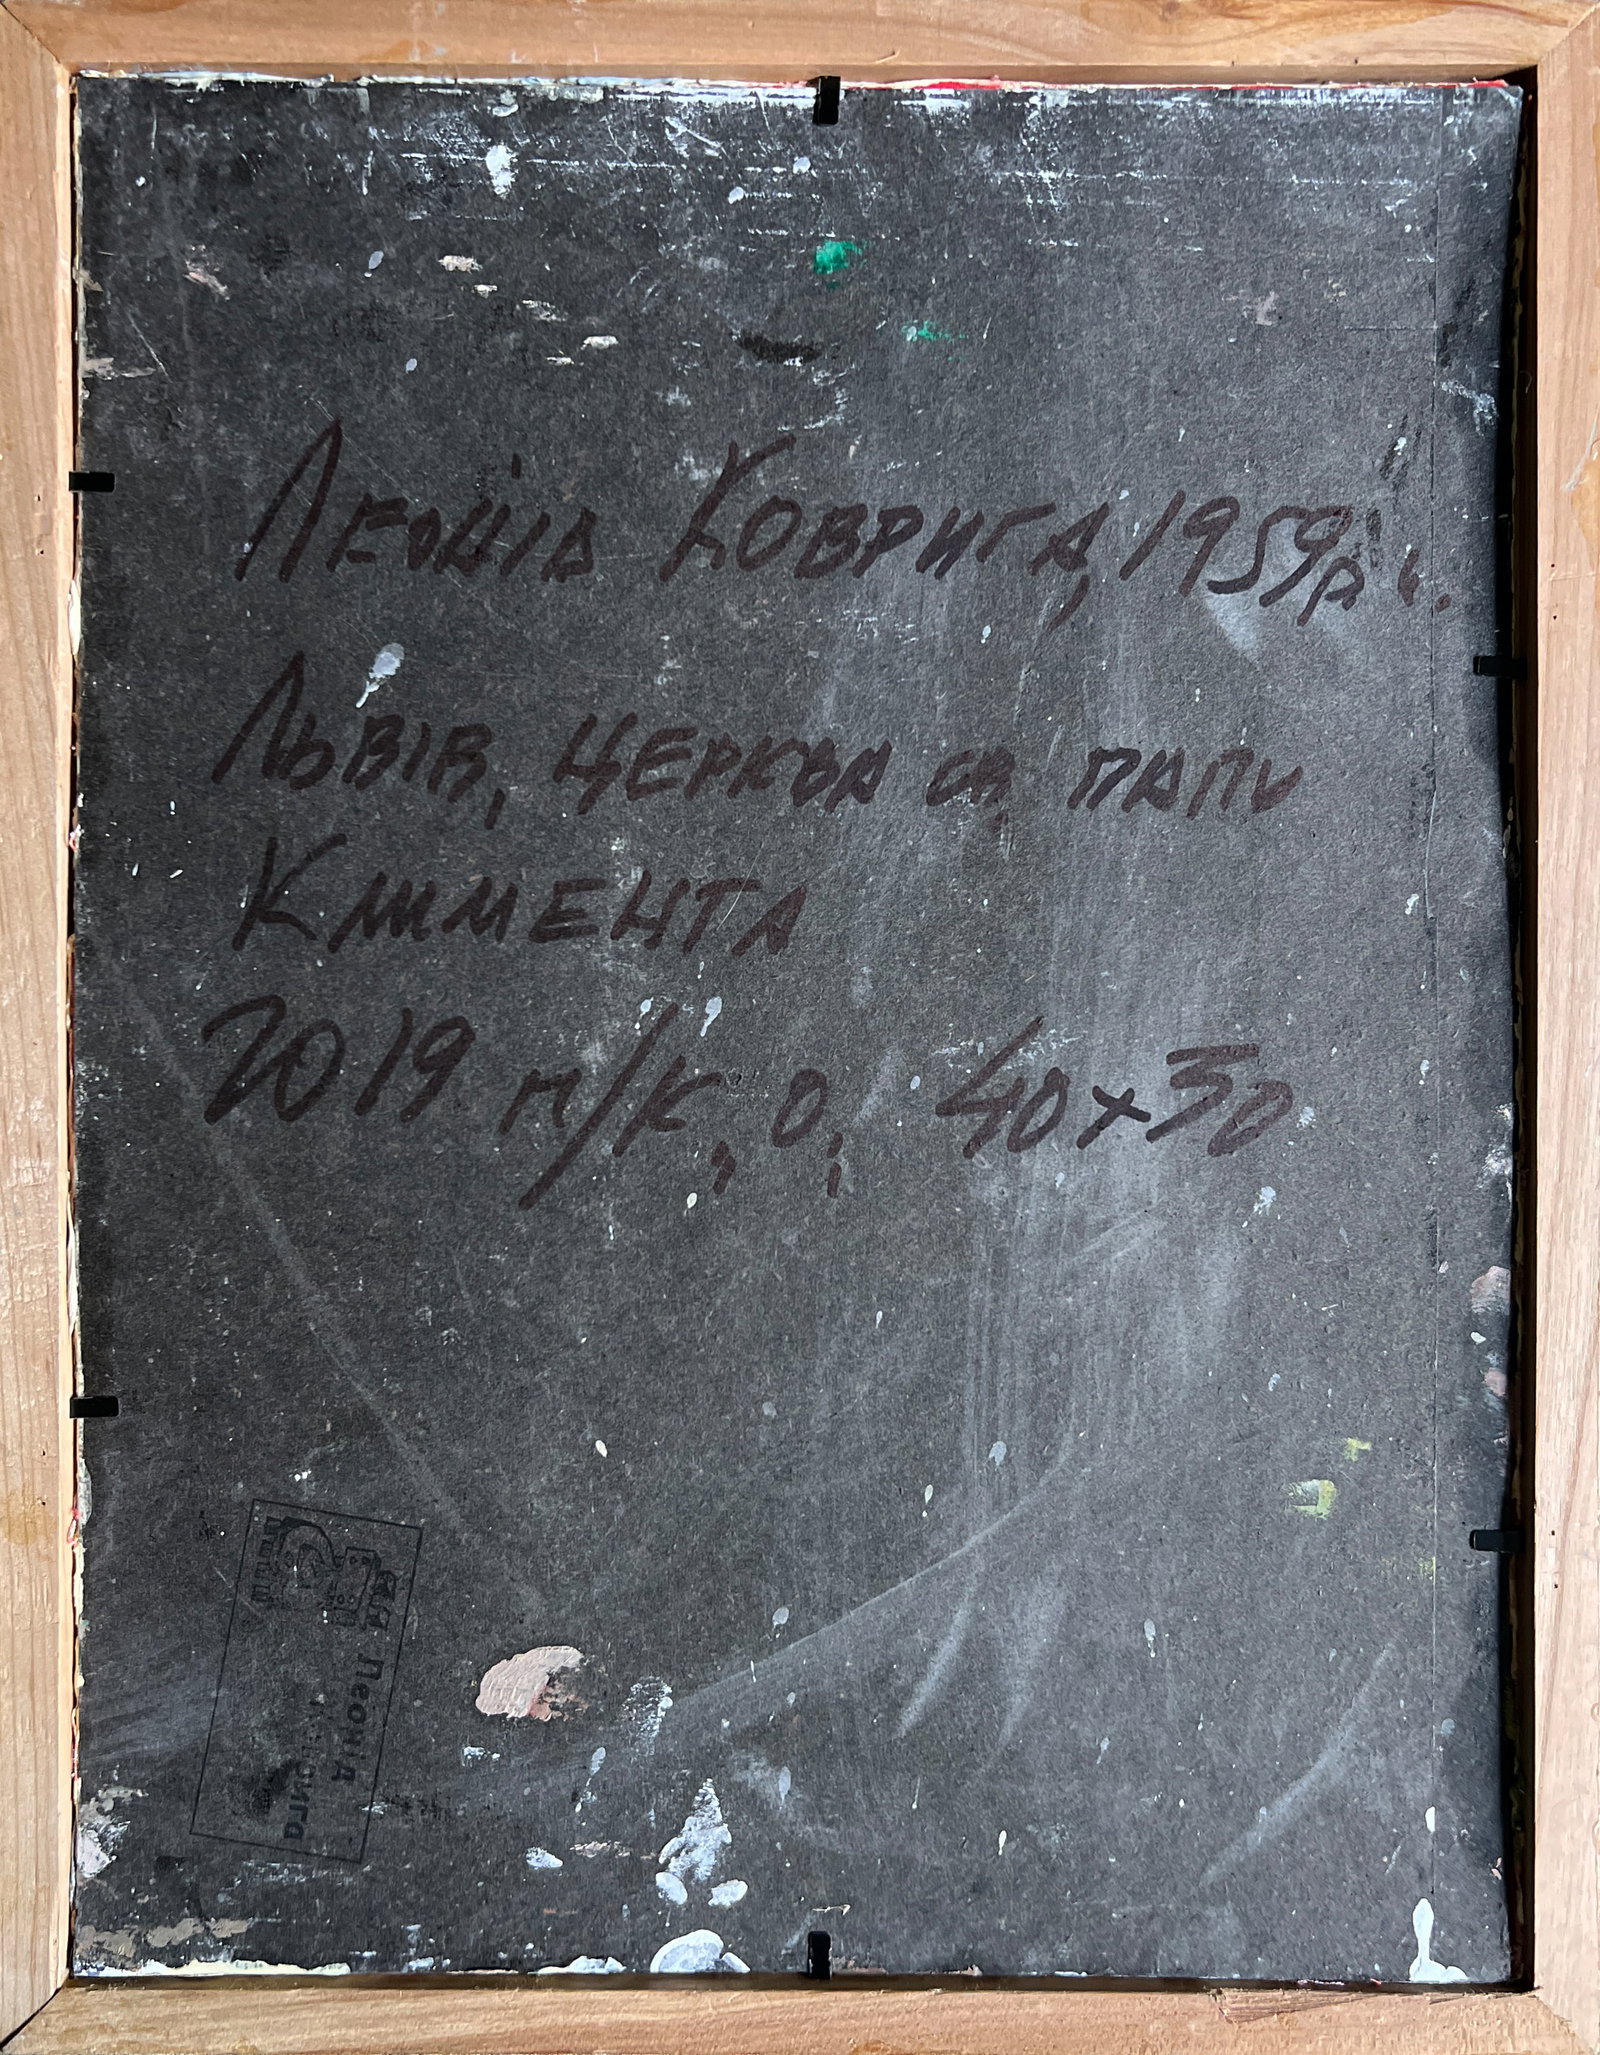 Леонід Коврига, 1959р.н.
Львів, церква св, папи
Климента
2019 п/к, о, 40х30
Леонід
Коврига